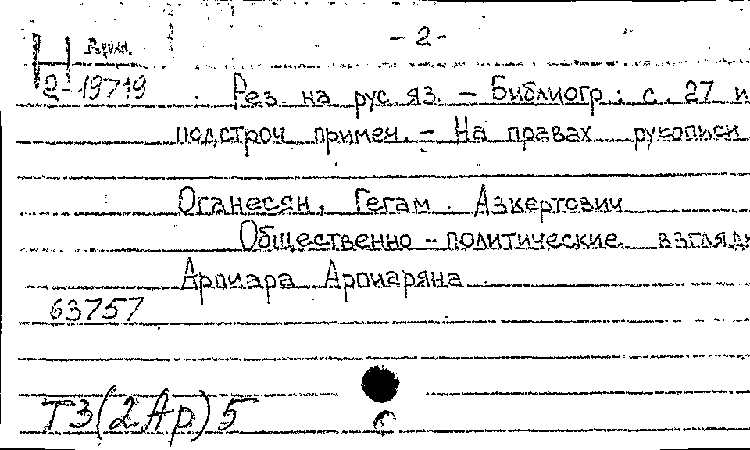 - 2 -
Арм.
2-19719
Рез. на рус. яз. — Библиогр.: с. 27 и
подстроч. примеч. — На правах рукописи
Оганесян, Гегам Азкертович
Общественно-политические взгляды
Арпиара Арпиаряна
63757
Т3(2Ар)5